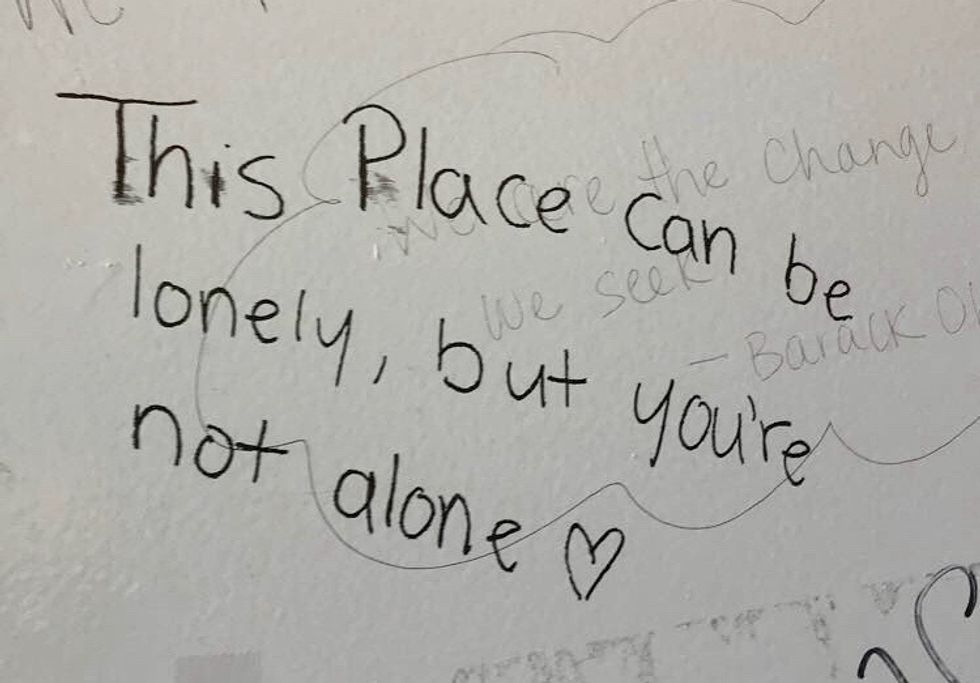 This Place can be
lonely, but you're
not alone ♡
we are the change
we seek
- Barack